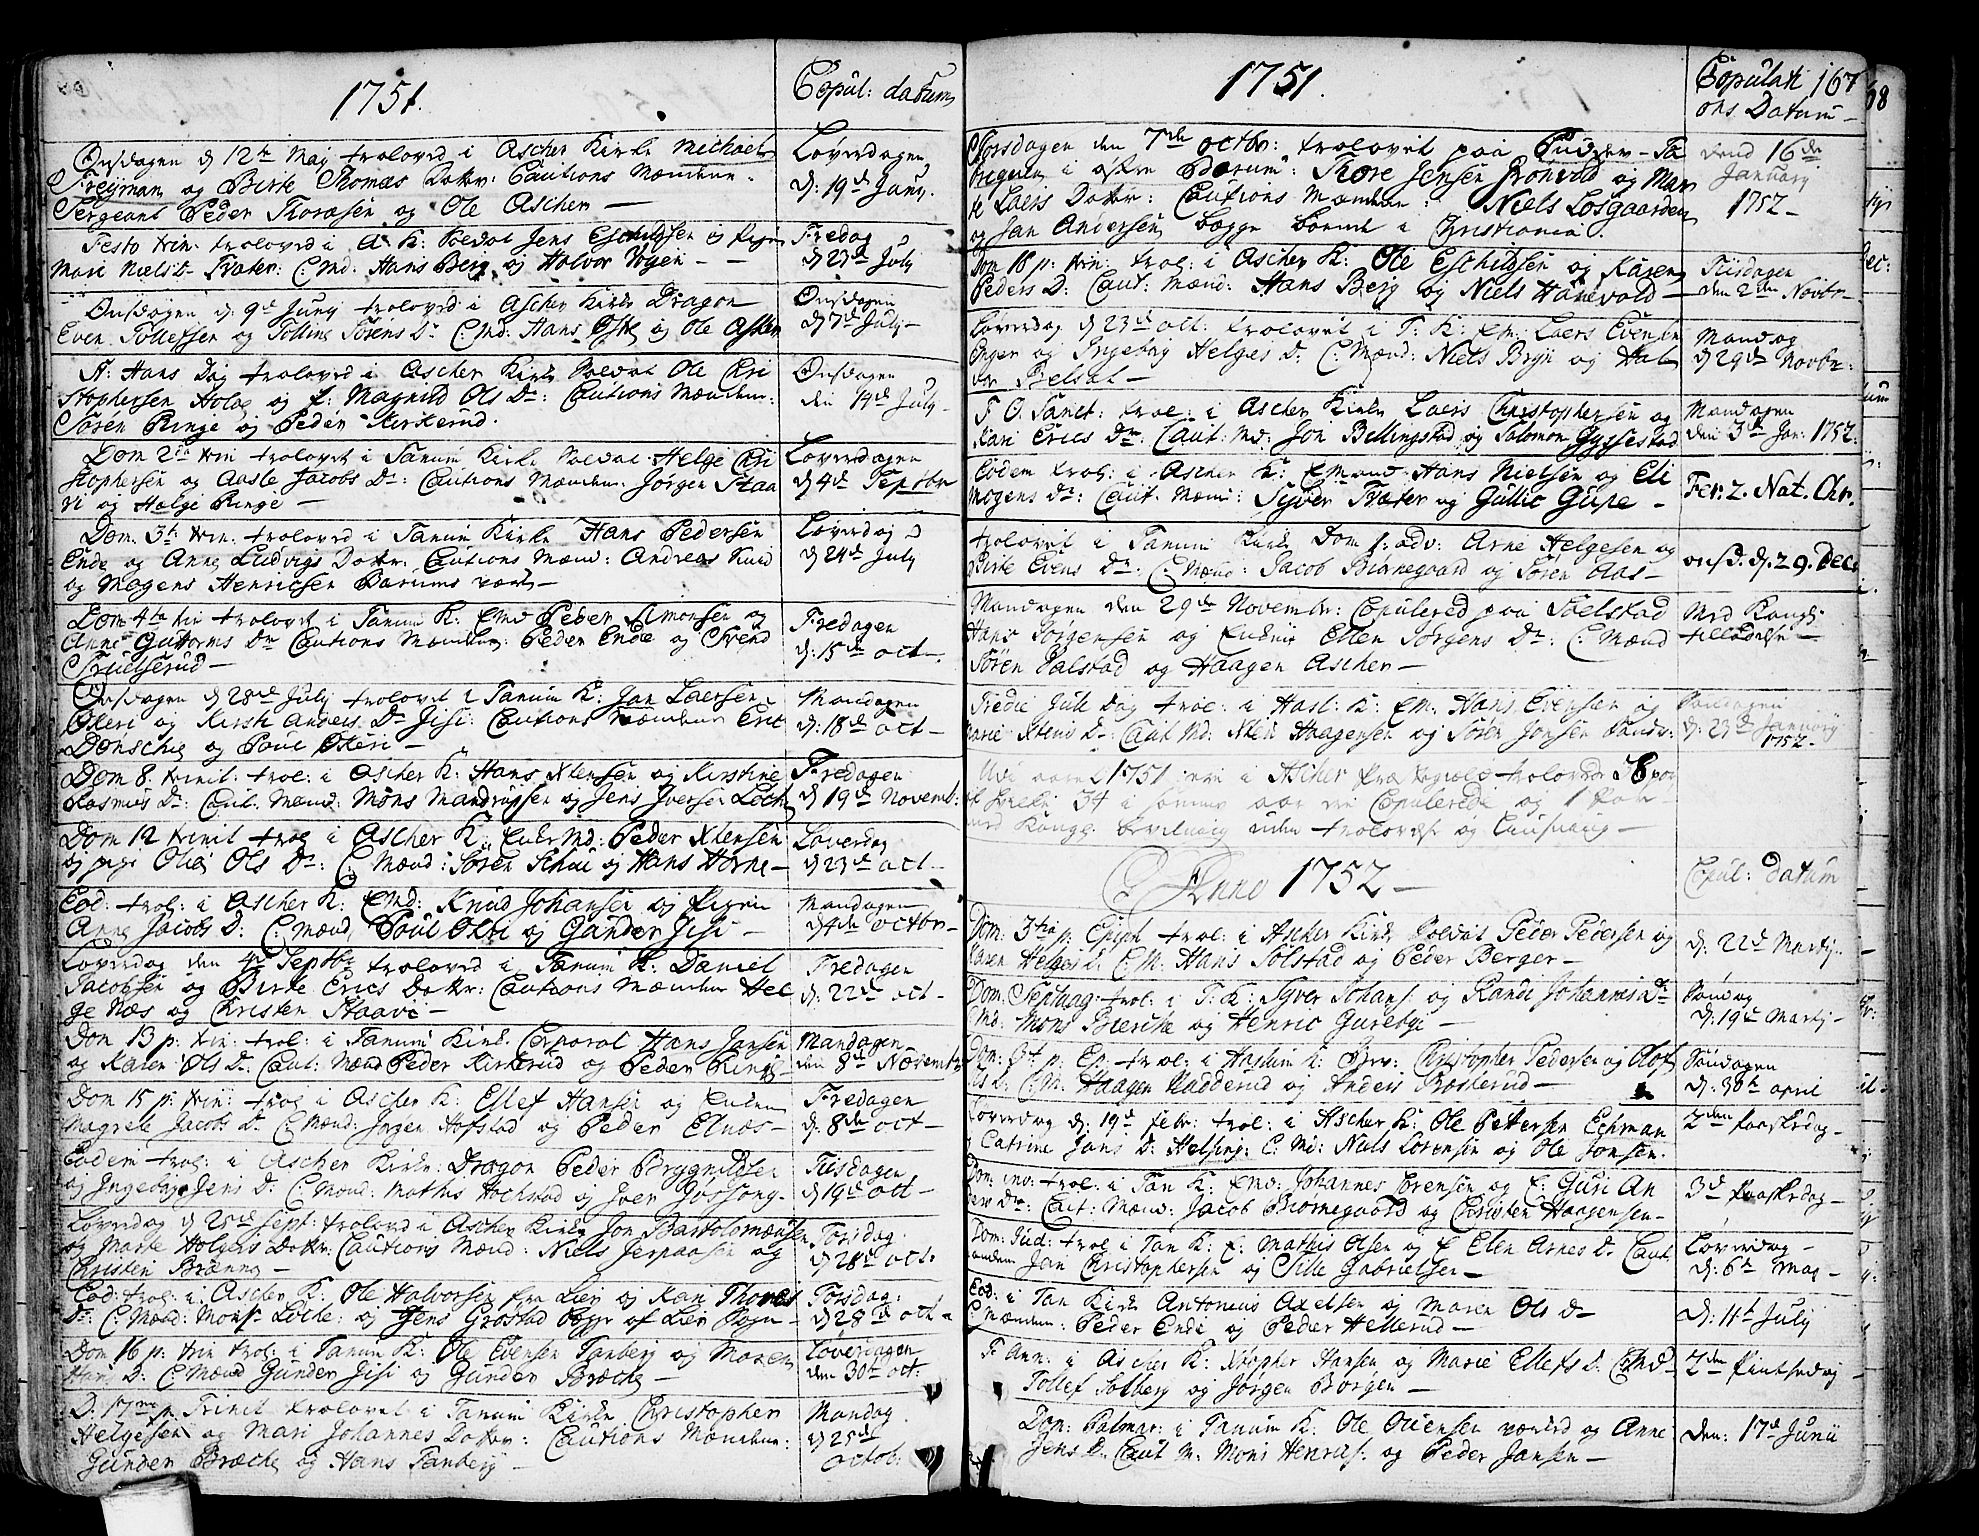 1751.
Copul: datum
Onsdagen d 12te Maj troloved i Ascher Kirke Michael
Freyman og Birte Thomæs Dotter: Cautions Mændene
Sergeant Peder Thoresen og Ole Ascher —
Løverdagen
d: 19de Juny.
Festo trin: troloved i A: K: Soldat Jens Eschildsen og Pigen
Mari Niels D: Træter: C: Md: Hans Berg og Halvor Vøyen —
Fredag
d 23de July
Onsdagen d: 9de Juny troloved i Ascher Kirke Dragon
Even Tollefsen og Tolline Sørens Dr C: Md: Hans Østre og Ole Ascher
Onsdagen
d 7de July —
St: Hans Dag troloved i Ascher Kirke Soldat Ole Cri
stophersen Holae og E: Magnild Ols Dr: Cautions Mændene:
Søren Ringe og Peder Kirkerud.
Onsdagen
den 14de July —
Dom 2da trin trolovet i Tanum Kirke Soldat Helge Cri
stophersen og Aasle Jacobs Dr: Cautions Mændene: Jørgen Staa
vi og Helge Ringe —
Løverdagen
d 4de Septbr
Dom: 3tia trin: troloved i Tanum Kirke Hans Pedersen
Ende og Anne Ludvigs Dotter: Cautions Mænd: Andreas Knud
og Mogens Henricsen Bærums verk —
Løverdag
d 24de July
Dom 4ta trin trolovet i Tanum K: EMd Peder Simonsen og
Anne Guttorms Dr Cautions Mændene Peder Ende og Svend
Truelserud —
Fredagen
d: 15de oct —
Onsdagen d 28de July trolovet i Tanum K: Jan Laersen
Økeri og Kirsti Anders Dr Jisi: Cautions Mændene Eric
Dønschie og Poul Økeri —
Mandagen
d: 18de oct —
Dom 8. trinit: trol: i Ascher K: Hans Xtensen og Kirstine
Rasmus D: Caut. Mænd: Mons Mandrupsen og Jens Iversen Løche
Fredagen
d 19de Novemb:
Dom 12 trinit trol i Ascher K: Enke Md: Peder Xtensen
og pige Olia Ols Dr: C: Mænd: Søren Schui og Hans Horne —
Løverdag
d 23de oct —
Eod: trol: i Ascher K: EMd: Knud Johansen og Pigen
Anne Jacobs D: C: Mænd Poul Økri og Gunder Jisi —
Mandagen
d 4de octobr —
Løverdag den 4de Septbr troloved i Tanum K: Daniel
Jacobsen og Birte Erics Dotter: Cautions Mændene Hel
ge Næs og Christen Staavi —
Fredagen
d: 22de oct —
Dom 13 p: trin: trol: i Tanum Kirke Corporal Hans Jansen
og Karen Ols D: Caut: Mænd Peder Kirkerud og Peder Ringe
Mandagen
den 8de Novembr
Dom 15 p: trin: trol i Ascher K: Ellef Hansen og Enken
Magrete Jacobs D: C: Mænd: Jørgen Hofstad og Peder Elnæs —
Fredagen
d: 8de oct —
Eodem trol: i Ascher Kirke: Dragon Peder Brygnildsen
og Ingebor Jens D: C: Mænd: Mathis Hochstad og Iver Gossong —
Tiisdagen
d 19de oct —
Løverdag d 25de Sept: trolovd i Ascher Kirke Jon Bartolomæusen
og Marte Holgers Dotter: Cautions Mænd: Niels Jerpaasen og
Christen Brønne —
Torsdag
d 28de oct:
Eod: trol: i Ascher K: Ole Halvorsen fra Lier og Kari Thores
D: C: Mænd: Mons Løcke: og Jens Grøstad Begge af Lier Sogn —
Torsdag:
d 28de oct —
Dom 16 p: trin trol: i Tanum K: Ole Evensen Tanberg og Maren
Hans D: C: Mænd Gunder Jisi og Gunder Bræche —
Løverdagen
den 30te oct:
D: 17me p. Trinit trolovet i Tanum Kirke Christopher
Helgesen og Mari Johannes Dotter: Cautions Mændene:
Gunder Bræche og Hans Tanberg —
Mandag
d 25de
octob:
1751.
Copulati 167
ons Datum —
Torsdagen den 7de octbr: trolovet paa
i østre Bærum: Thore Jensen Grønvold og Mar
te Laers Dotter: Cautions Mændene: Niels Losgaarden
og Jan Andersen begge boende i Christiania.
Dend 16de
January
1752 —
Dom 18 p: trin: trol: i Ascher K: Ole Eschildsen og Karen
Peders D: Caut: Mænd: Hans Berg og Niels Hanevold —
Tiisdagen
den 2den Novbr —
Løverdag d 23de oct: trolovet i T: K: Em: Laers Evensen
Enger og Ingebor Helges D: C: Mænd: Niels Bryn og Hal
vor Belset —
Mandag
d 29de Novbr:
F. O. Sanct: trol: i Ascher Kirke Laers Christophersen og
Kari Erics Dr: Caut: Md: Jon Billingstad og Salomon Gyssestad
Mandagen
den 3de Jan: 1752.
Eodem trol: i Ascher K: Emand Hans Nielsen og Eli
Mogens Dr: Caut. Mænd: Syver Træter og Gullic Gupe —
Fer: 2. Nat. Chr.
trolovet i Tanum Kirke Dom 1: adv: Arne Helgesen og
Birte Evens Dr: C: Mænd: Jacob Binnegaard og Søren Aas —
onsd. d. 29. Dec:
Mandagen den 29de Novembr: Copulered paa Solstad
Hans Jørgensen og Enken Ellen Jørgens Dr: C: Mænd
Søren Valstad og Haagen Ascher —
Med Kongl:
tilladelse —
Tredie Jule Dag trol: i Hasl: K: EM: Hans Evensen og
Marie Stens D: Caut: Md: Sten Haagensen og Søren Jonsen Sandv:
Søndagen
d: 23de January
1752 —
Udi aaret 1751 ere i Ascher Præstegield trolovede 36 par
34 i samme aar ere Copulerede og 1 Par
med Kongl: bevilning uden trolovelse og Lysning —
Anno 1752 —
Copul: datum
Dom: 3tia p: Epiph trol: i Ascher Kirke Soldat Peder Pedersen og
Karen Helges D. C: M: Hans Solstad og Peder Berger —
d: 22de Martij —
Dom: Septuag: trol: i T: K: Syver Johans: og Randi Johannes Dr
Md: Mons Bierche og Henric Gurebye —
Søndag
d: 19de Martij —
Dom: 6t p: Ep: trol: i Haslum K: Christopher Pedersen og Olof
Ols D: C: M: Haagen Hadderud og Anders Bosterud —
Søndagen
d: 30te april
Løverdag d: 19de febr: trol: i Ascher K: Ole Pettersen Echman
og Catrine Jans D: Helsing: C: Md: Niels Lorensen og Ole Jonsen.
2den paaskedag —
Dom: inv: trol: i Tan K: EMd: Johannes Sørensen og E: Guri An
ders Dr: Caut: Mænd: Jacob Biørnegaard og Christen Haagensen —
3de paaskedag —
Dom: Jud: trol i Tan K: E: Mathis Olsen og E Elen Arnes D: Caut:
Jan Christophersen og Sille Gabrielsen —
Løverdag —
d: 6te Maj —
Eod: i Tan Kirke Antonius Axelsen og Maren Ols D —
C Mændene: Peder Ende og Peder Hellerud —
d: 11te July
F Ann: i Ascher K: Xstopher Hansen og Marie Ellefs D. C: Md —
Tollef Solberg og Jørgen Borgen —
2den Pintsedag —
Dom: Palmar: i Tanum K: Ole Olensen og Anne
Jens D: Caut M: Mons Henrics: og Peder Jansen —
den: 17de Junii
68